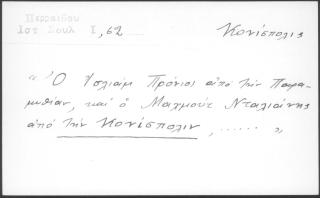 Περραιβου
Ιστ Σουλ Ι, 62
Κονίσπολις
"Ὁ Ἰσλιὰμ Πρόνιος ἀπὸ τὴν Παρα-
μυθίαν, καὶ ὁ Μαχμοὺτ Νταλιάνης
ἀπὸ τὴν Κονίσπολιν, ...... "